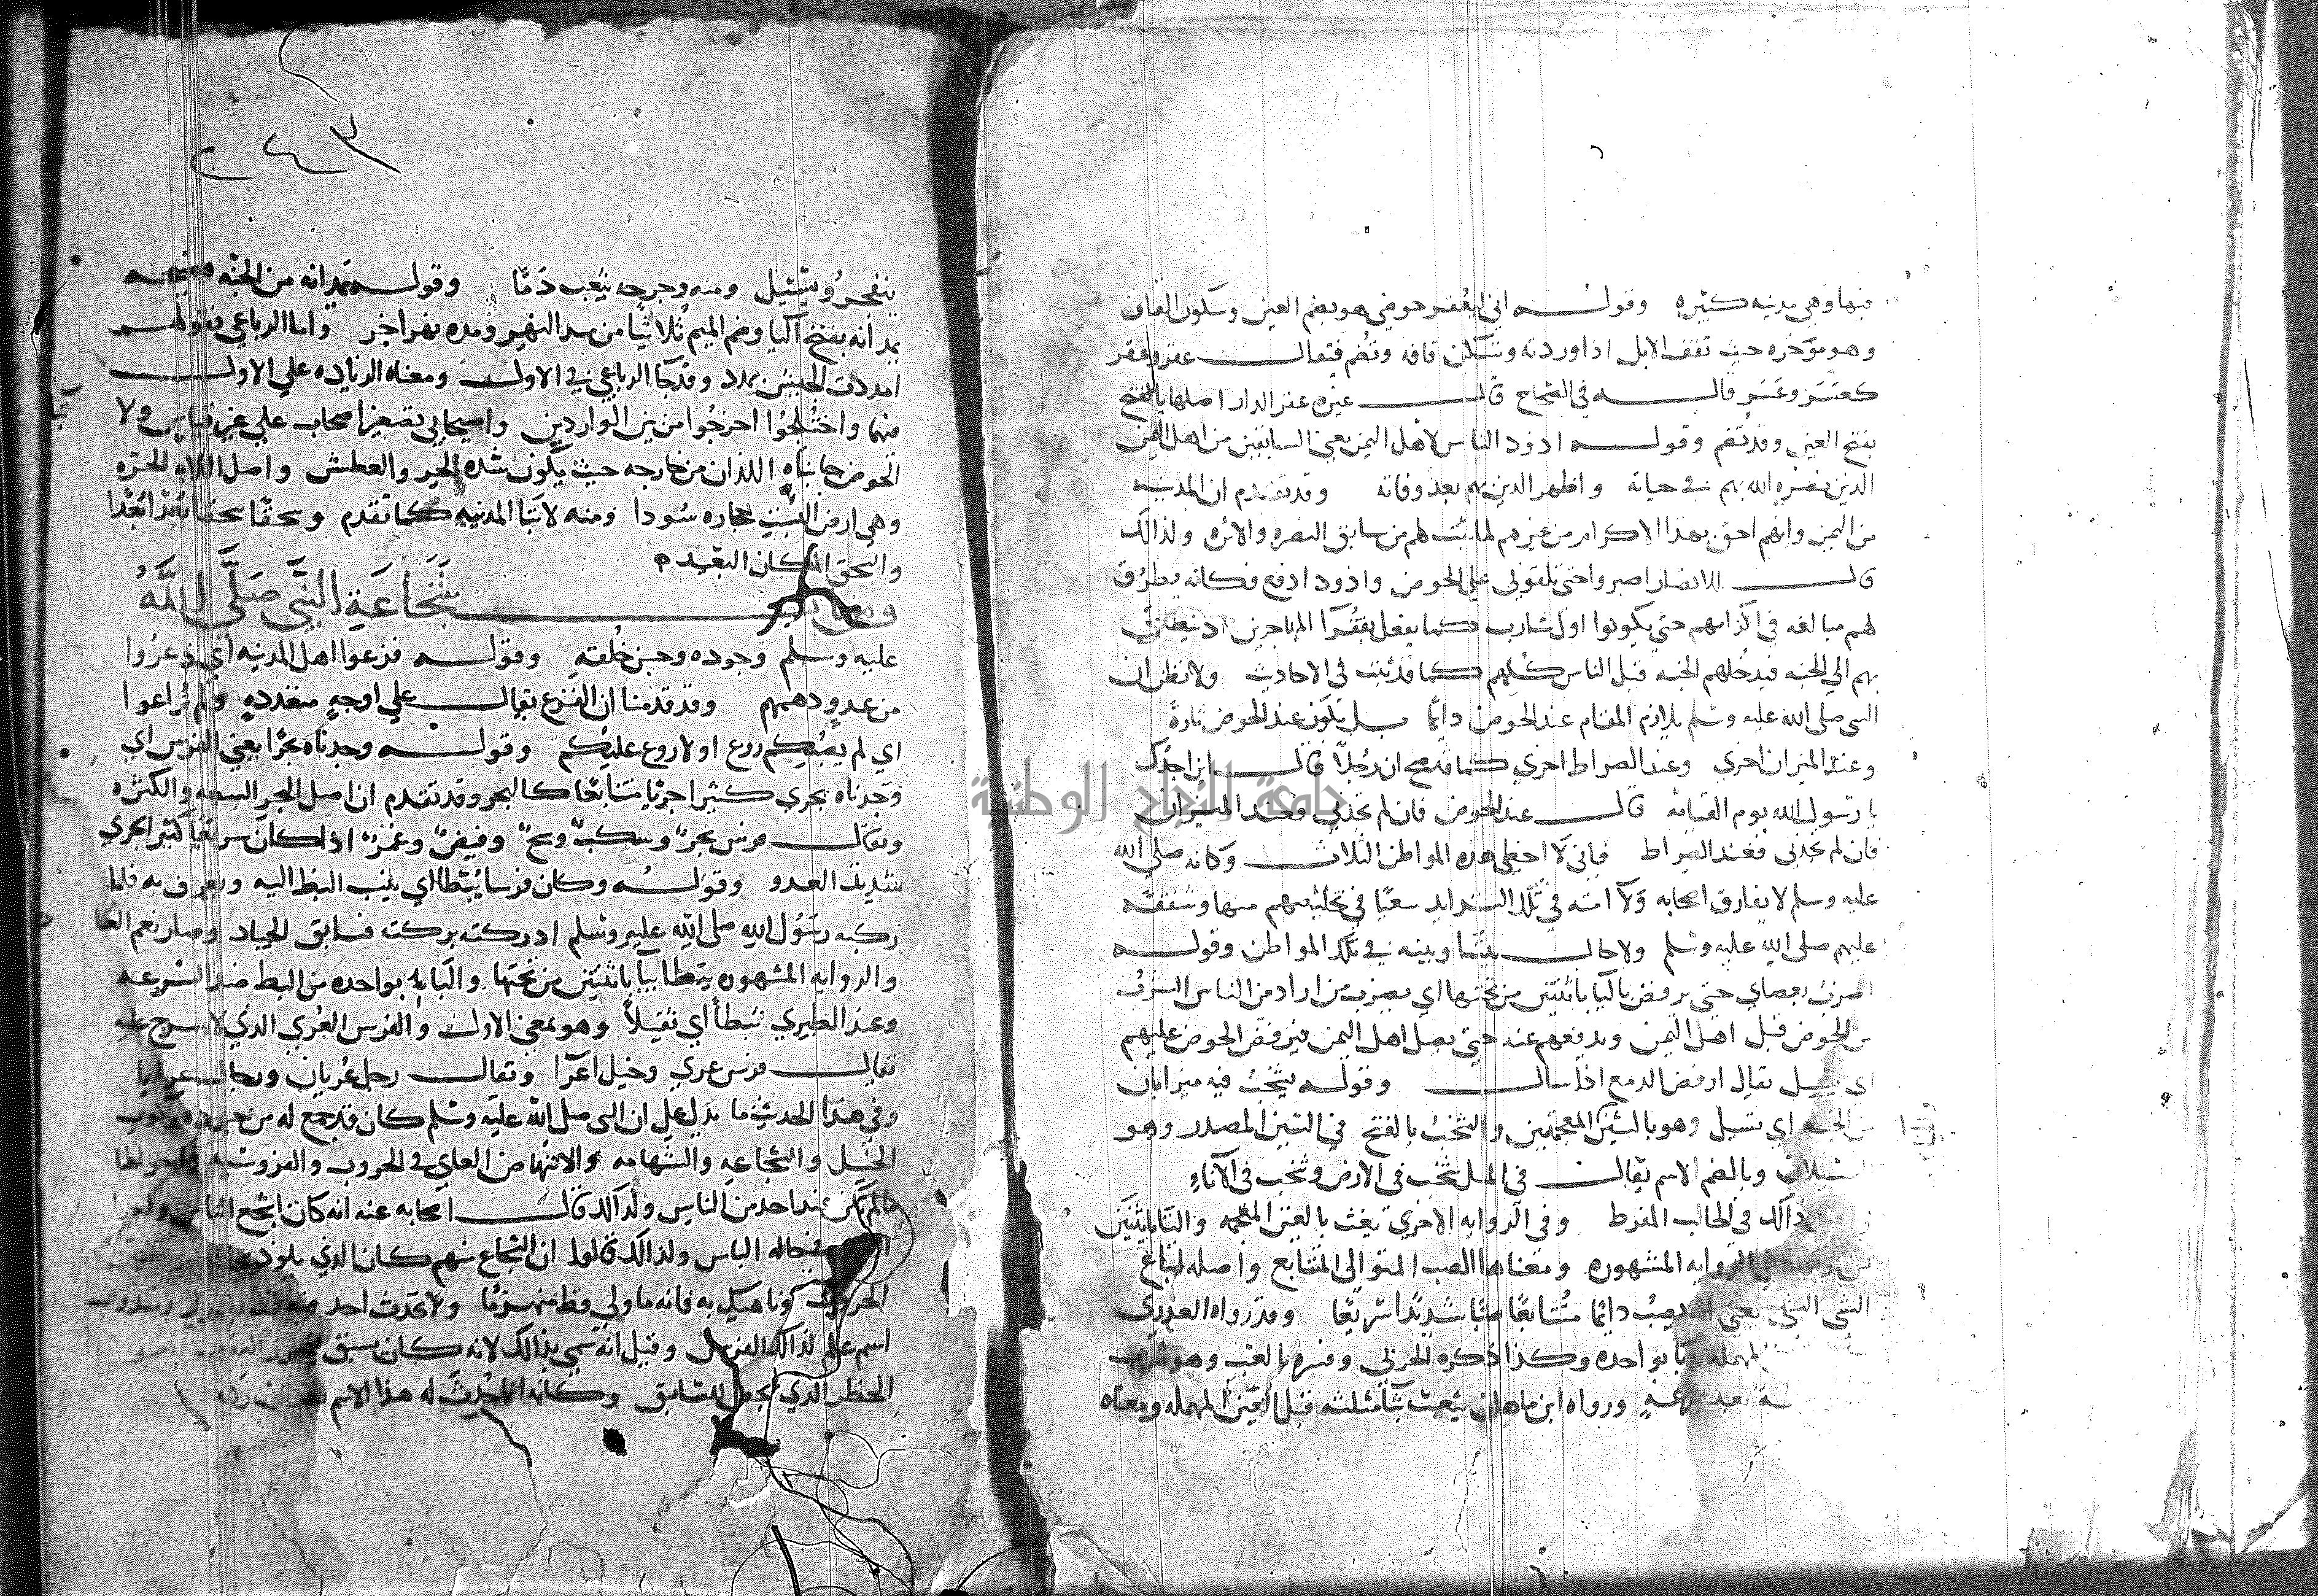 فيها وهي مدينه كثيره وقوله اني لبعقر حوضي هو بضم العين وسكون القاف
وهو مؤخره حيث تقف الابل اذا وردته وتسكن قافه وتضم فيقال عقر وعقر
كعسر وعسر قاله في الصحاح قال غيره عقر الدار اصلها بالفتح
بفتح العين وقد تضم وقوله اذود الناس لاهل اليمن يعني السابقين من اهل اليمن
الذين نصره الله بهم في حياته واظهر الدين بهم بعد وفاته وقد تقدم ان المدينه
من اليمن وانهم احق بهذا الاكرام من غيرهم لما ثبت لهم من سابق النصره والاثره ولذالك
قال للانصار اصبروا حتى تلقوني علي الحوض واذود ادفع فكانه يطرق
لهم مبالغه في اكرامهم حتي يكونوا اول شارب كما يفعل بفقرا المهاجرين اذ ينطلق
بهم الي الجنه فيدخلهم الجنه قبل الناس كلهم كما قد ثبت في الاحاديث ولا تظن ان
النبي صلي الله عليه وسلم يلازم المقام عند الحوض دائما بل يكون عند الحوض تارةً
وعند الميزان اخري وعند الصراط اخري كما قد صح ان رجلاً قال اين اجدك
يا رسول الله يوم القيامه قال عند الحوض فان لم تجدني فعند الميزان
فان لم تجدني فعند الصراط فاني لا اخطي هذه المواطن الثلاث وكانه صلي الله
عليه وسلم لا يفارق اصحابه ولا امته في تلك الشدايد سعيًا في تخليصهم منها وشفقه
عليهم صلي الله عليه وسلم ولا حال بيننا وبينه في تلك المواطن وقوله
اضرب بعصاي حتي يرفض باليا باثنتين من تحتها اي يضرب من اراد من الناس الشرب
من الحوض قبل اهل اليمن ويدفعهم عنه حتي يصل اهل اليمن فيرفض الحوض عليهم
اي يسيل يقال ارفض الدمع اذا سال وقوله يشخب فيه ميزابان
من الجنه اي تسيل وهو بالشين المعجمتين والشخب بالفتح في الشين المصدر وهو
السيلان وبالضم الاسم يقال في المثل شخب في الارض وشخب في الاناءِ
ذالك في الحالب المفرط وفي الروايه الاخري يغت بالغين المعجمه والتا باثنتين
الروايه المشهوره ومعناها الصب المتوالي المتتابع واصله اتباع
الشي الشي يعني انه يصب دائما متتابعًا صبًا شديدًا سريعًا وقد رواه العذري
المهمله وبا بواحده وكذا ذكره الحربي وفسره بالعب وهو شرب
ورواه ابن ماهان يثعب بثا مثلثه قبل العين المهمله ومعناه
٢٤٣
ينفجر ويسيل ومنه وجرحه يثعب دَمًا وقوله يمدانه من الجنه
يمدانه بفتح اليا وضم الميم ثلاثيًا من مد النهر ومده نهر اخر واما الرباعي فقولهم
امددت الجيش بمدد وقد جا الرباعي في الاول ومعناه الزياده علي الاول
منهما واختلجوا اخرجوا من بين الواردين واصيحابي تصغير اصحاب علي غير قياس ولا
الحوض جانباه اللذان من خارجه حيث يكون شده الحر والعطش واصل اللابه الحره
وهي ارض البست حجاره سودا ومنه لابتا المدينه كما تقدم وسحقًا سحقا بعدًا بُعْدًا
والسحق المكان البعيد ه
شَجَاعَةِ النَّبِّي صَلَّى اللَّهُ
عليه وسلم وجوده وحسن خُلُقه وقوله فزعوا اهل المدينه اي ذعروا
من عدو دهمهم وقد قدمنا ان الفزع يقال علي اوجهٍ متعددهٍ ولم تراعوا
اي لم يصبكم روع او لا روع عليكم وقوله وجدناه بحرًا يعني الفرس اي
وجدناه يجري كثيرا جريا متتابعًا كالبحر وقد تقدم ان اصل البحر السعه والكثره
ويقال فرس بحر وسكب وسح وفيض وغمر اذا كان سريعًا كثير الجري
شديد العدو وقوله وكان فرسا يُبَطّا اي ينسب البط اليه ويعرف به فلما
ركبه رسول الله صلي الله عليه وسلم ادركته بركته فسابق الجياد وصار نعم
والروايه المشهوره يبطا بيا باثنتين من تحتها والبا بواحده من البط ضد السرعه
وعند الطبري ثبطا اي ثقيلاً وهو بمعني الاول والفرس العُري الذي لا سرج عليه
يقال فرس عري وخيل اعرا ويقال رجل عُريان ورجال عرايا
وفي هذا الحديث ما يدل علي ان النبي صلي الله عليه وسلم كان قد جمع له من جوده ركوب
الخيل والشجاعه والشهامه والانتهاض العالي في الحروب والفروسيه واحوالها
ما لم يكن عند احد من الناس ولذالك قال اصحابه عنه انه كان اشجع الناس
حاله الباس ولذالك قالوا ان الشجاع منهم كان الذي يلوذ
الحروب وناهيك به فانه ما ولي قط منهزمًا ولا تحدث احد
اسم علم لذالك الفرس وقيل انه سمي بذالك لانه كان يسبق
الخطر الذي يجعل للسابق وكانه انما حُدِث له هذا الاسم بعد ان ركبه